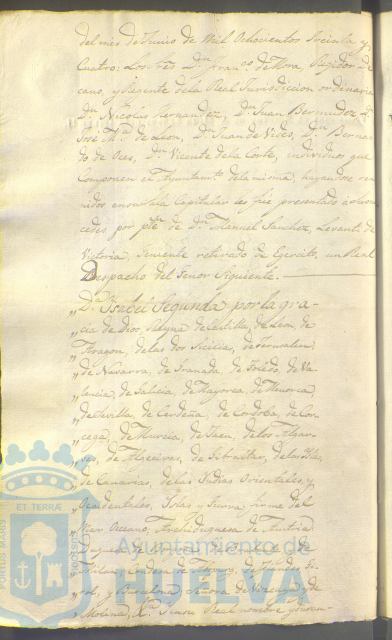 del mes de Junio de Mil Ochocientos treinta y
Cuatro: Los Sres Dn. Franco de Mora, Regidor de
cano, y Regente de la Real Jurisdiccion ordinaria
Dn. Nicolas Hernandez, Dn. Juan Bermudez, Dn.
José Ma. de Leon, Dn. Juan de Vides, Dn. Bernar
do de Oces, Dn. Vicente de la Corte, individuos que
Componen el Ayuntamto. de la misma, hayandose reu
nidos en su Sala Capitular les fue presentado á sus mer
cedes por pte. de Dn. Manuel Sanchez, Levanti de
Victoria, teniente retirado de Egercito, un Real
Despacho del tenor Siguiente.
„ Da. Isabel Segunda por la gra-
„ cia de Dios, Reyna de Castilla, de Leon, de
„ Aragon, de las dos Sicilias, de Jerusalen,
„ de Navarra, de Granada, de Toledo, de Va-
„ lencia, de Galicia, de Mayorca, de Menorca,
„ de Sevilla, de Cerdeña, de Cordoba, de Cor-
„ cega, de Murcia, de Jaen, de los Algar-
„ ves, de Algeciras, de Gibraltar, de las Islas
de Canarias, de las Indias Orientales, y
Occidentales, Islas y tierra firme del
Mar Oceano, Archiduquesa de Austria
Duquesa de Borgoña, de Brabante y de
Milan, Condesa de Abspurg, de Flandes, Ti-
rol, y Barcelona, Señora de Vizcaya y de
Molina, &a. Real nombre
ET TERRÆ
PORTUS MARIS
CUSTODIA
Ayuntamiento de
HUELVA